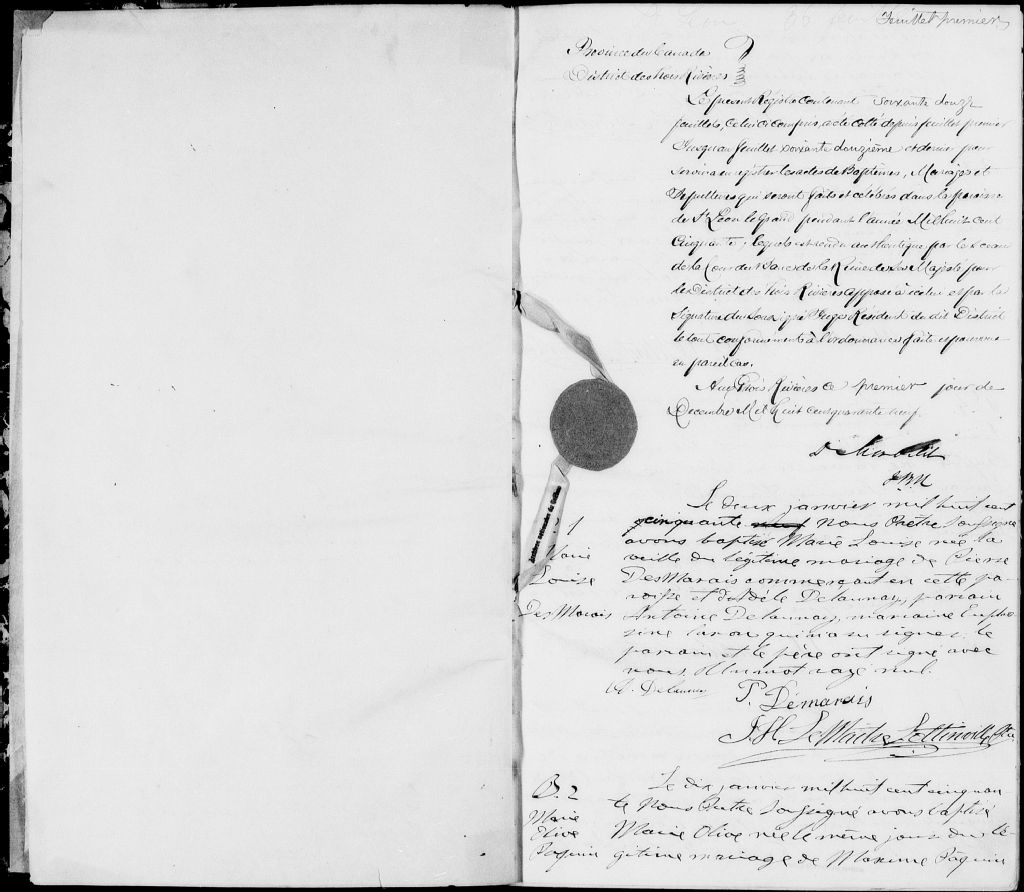 Feuillet premier
Province du Canada
District des Trois Rivières
Le présent Registre contenant soixante douze
feuillets, celui ci compris, a été cotté depuis feuillet premier
Jusqu'au feuillet soixante douzième et dernier pour
servir à enregistrer les actes de Baptêmes, Mariages et
Sepultures qui seront faits et célébrés dans la paroisse
de St. Léon le Grand pendant l'année Mil huit cent
Cinquante, lequel est rendu authentique par le Sceau
de la Cour du Banc de la Reine de Sa Majesté pour
le District des Trois Rivières apposé à icelui et par la
Signature du Soussigné Juge Résident du dit District
le tout conformément à l'ordonnance faite et pourvue
en pareil cas.
Aux Trois Rivières ce premier jour de
Decembre Mil huit cent quarante neuf.
D
JBR
Le deux janvier mil huit cent
cinquante neuf Nous Prêtre Soussigné
avons baptisé Marie Louise née la
veille du légitime mariage de Pierre
DesMarais commerçant en cette pa-
roisse et d'Adèle Delaunay, parrain
Antoine Delaunay, marraine Euphro-
sine Caron qui n'a su signer, le
parrain et le père ont signé avec
nous. Un mot rayé nul.
1
Marie
Louise
DesMarais
A. Delaunay
P. Démarais
J. H. LeMaître Lottinville Ptre
Archives nationales du Québec
B. 2
Marie
Olive
Paquin
Le dix janvier mil huit cent cinquan-
te Nous Prêtre Soussigné avons baptisé
Marie Olive née le même jour du lé-
gitime mariage de Maxime Paquin